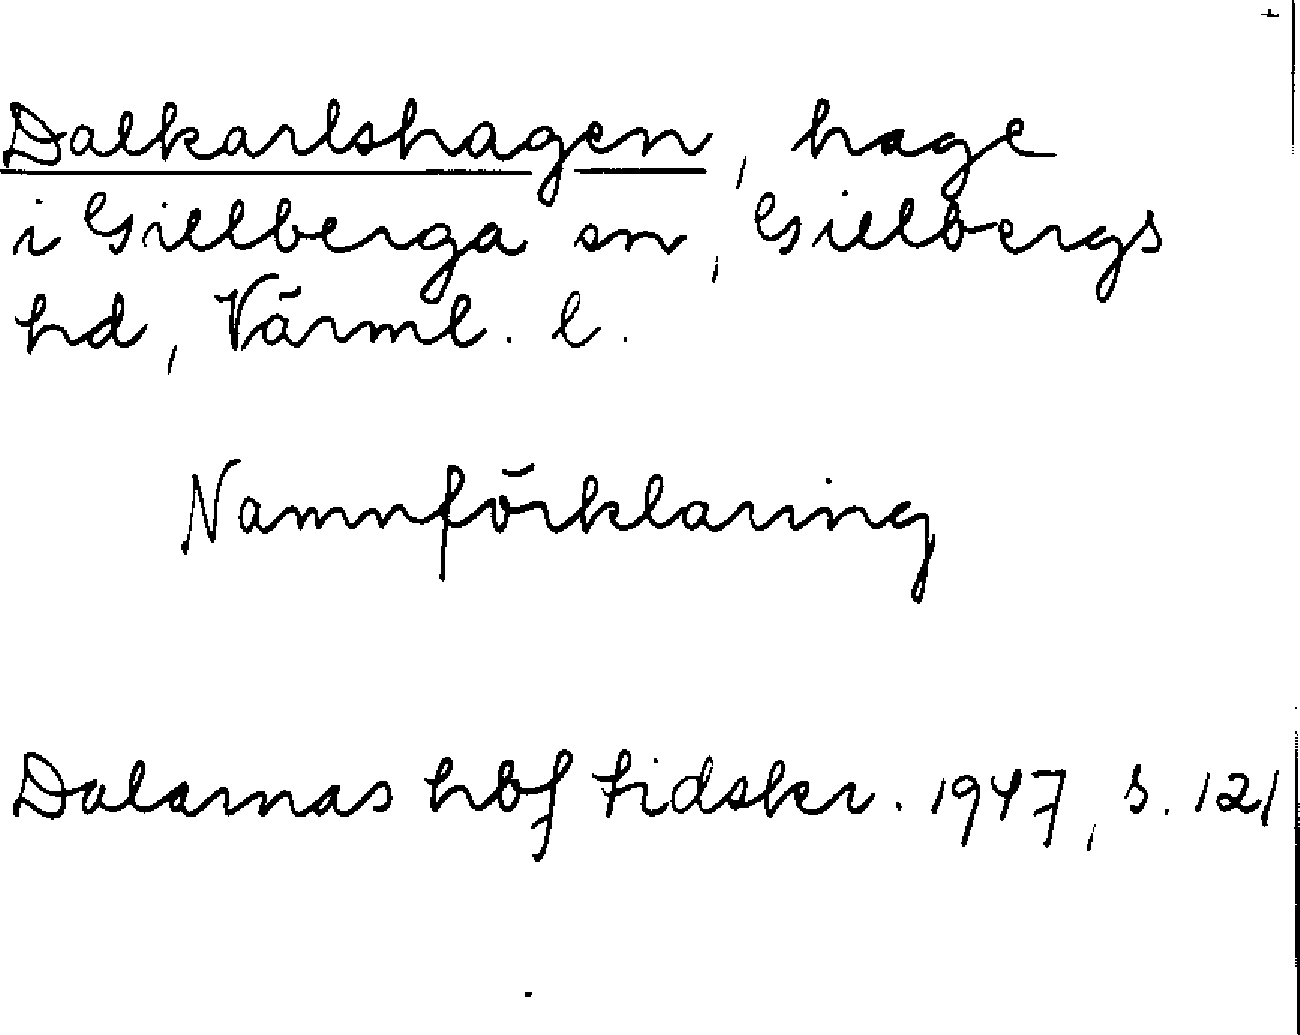 Dalkarlshagen, hage
i Gillberga sn, Gillbergs
hd, Värml. l.
Namnförklaring
Dalarnas hbf tidskr. 1947, s. 121